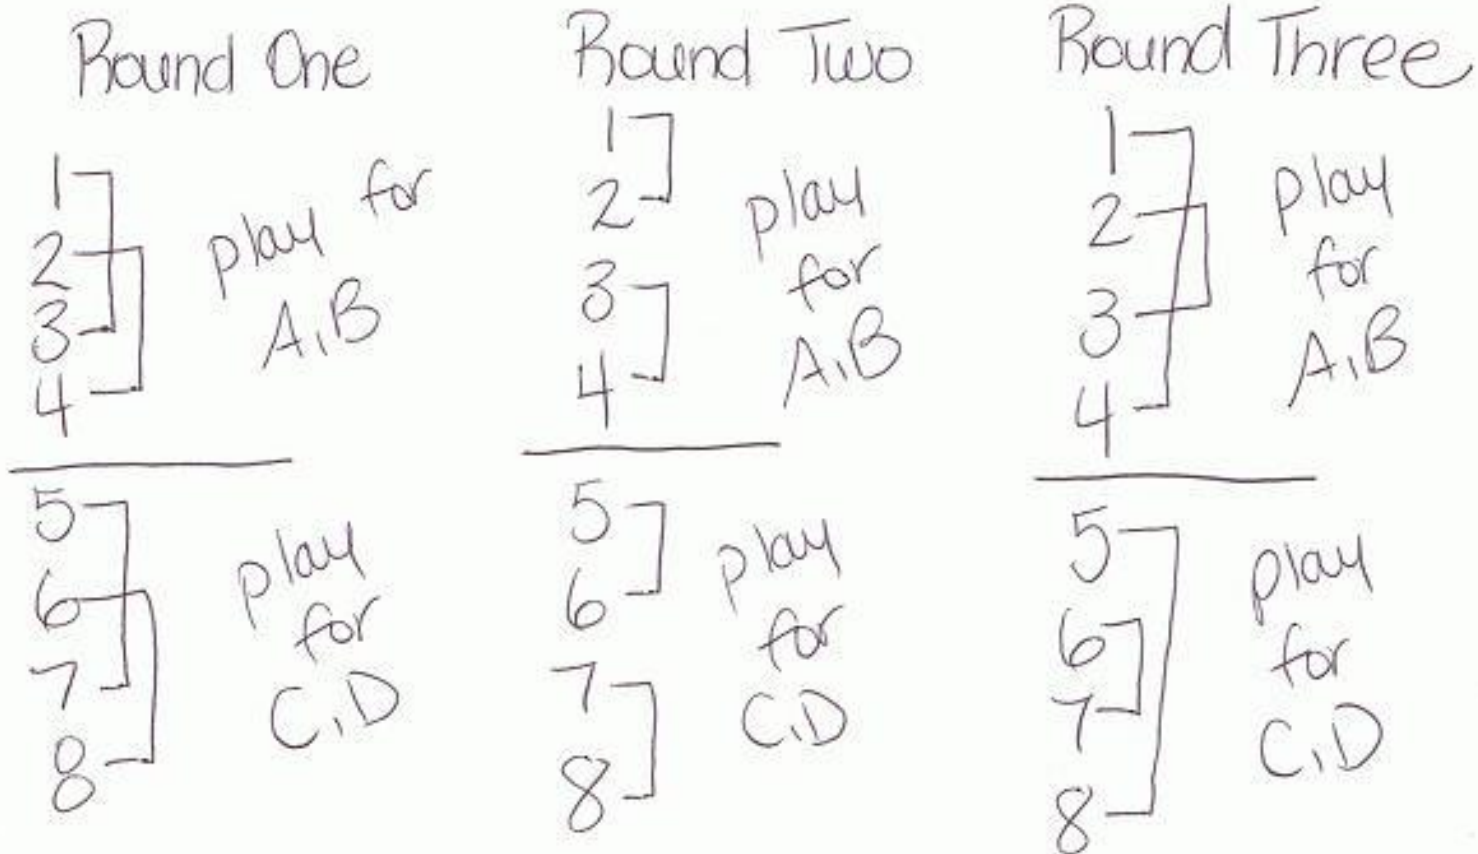 Round One
1
2
3
4
play for
A,B
5
6
7
8
play
for
C,D
Round Two
1
2
3
4
play
for
A,B
5
6
7
8
play
for
C,D
Round Three
1
2
3
4
play
for
A,B
5
6
7
8
play
for
C,D